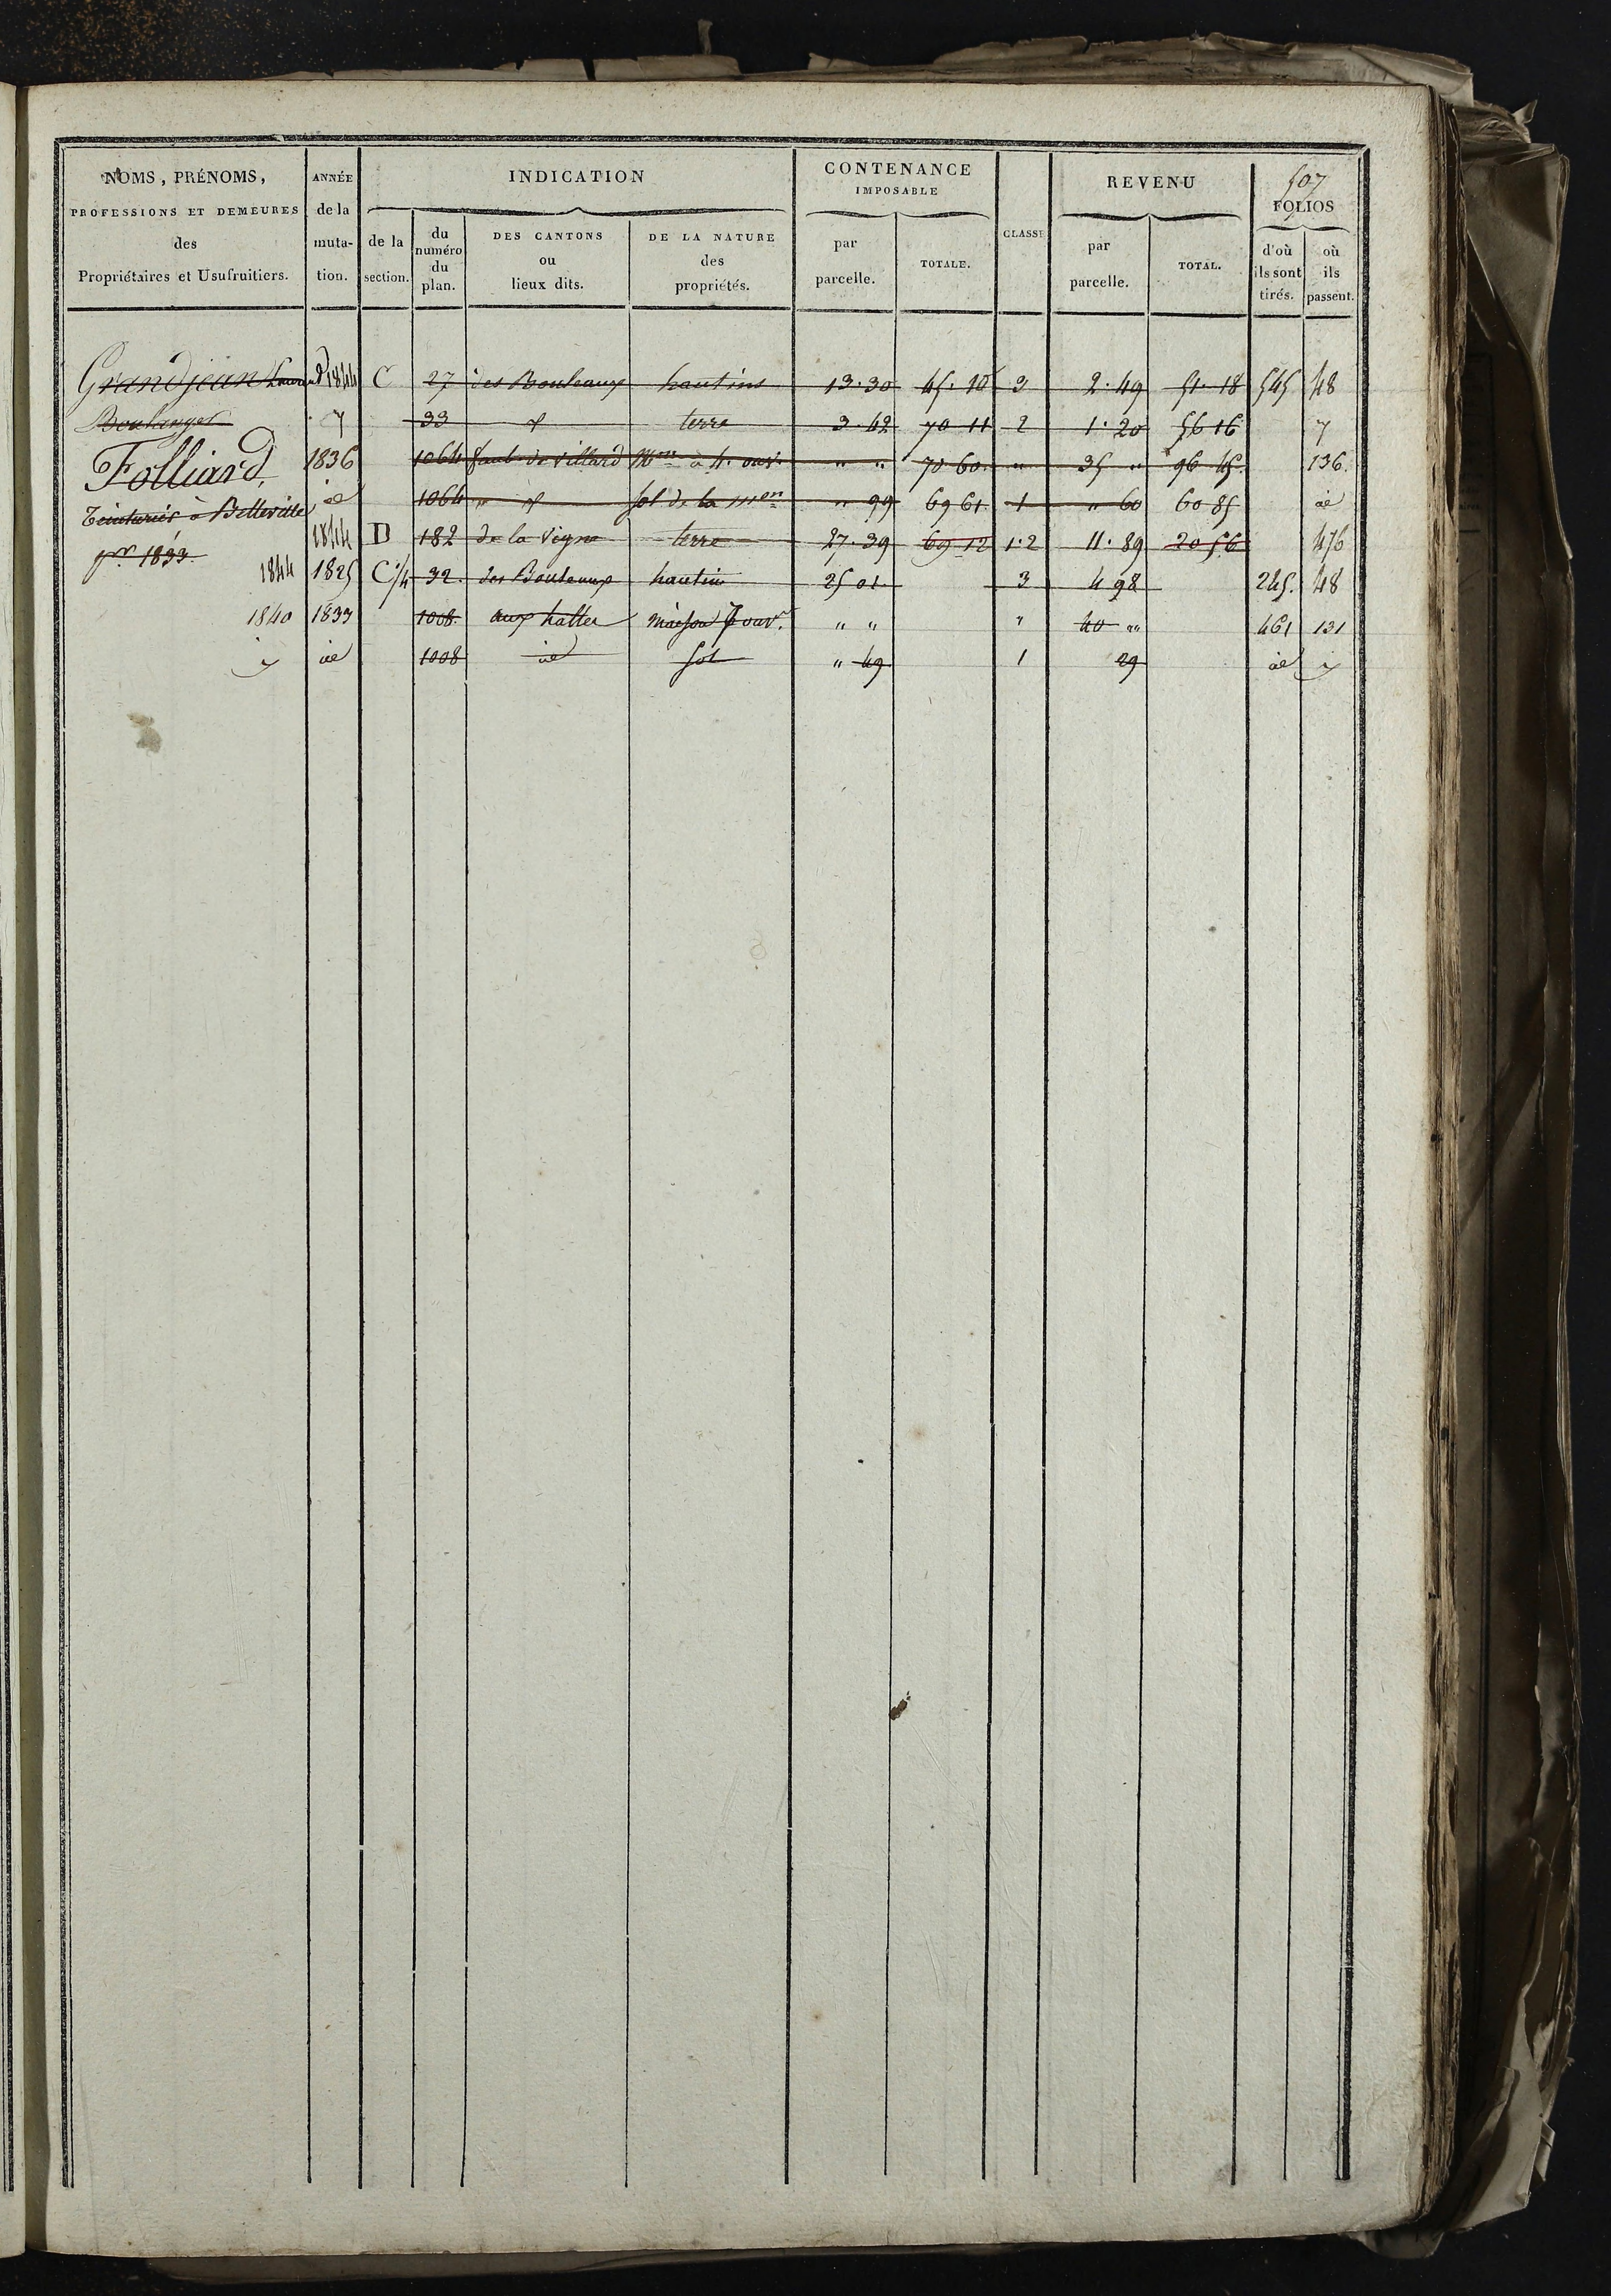 507
NOMS, PRÉNOMS, PROFESSIONS ET DEMEURES des Propriétaires et Usufruitiers.
ANNÉE de la muta-tion.
INDICATION
de la section.
du numéro du plan.
DES CANTONS ou lieux dits.
DE LA NATURE des propriétés.
CONTENANCE IMPOSABLE
par parcelle.
TOTALE.
CLASSE
REVENU
par parcelle.
TOTAL.
FOLIOS
d'où ils sont tirés.
où ils passent.
Grandjean 1844 C 27 des Bouleaux hautins 13.30 45.10 3 2.49 51.18 545 48
Boulanger 33 terre 3.42 70 11 2 1.20 56 16
Folliard, 1836 1064 faub. de villard Mon à 4. ouv. " " 70 60 " 35 " 96 45. 136.
Teinturier à Belleville id 1064 " sol de la mon " 99 69 61 1 " 60 60 85 id
pr. 1833. 1844 D 182 de la Vigne terre 27.39 69 12 1.2 11.89 20 56 476
1844 1825 C 1/4 32. des Bouleaux hautin 25 01 3 4 98 245. 48
1840 1833 1008. aux halles maison 7 ouv. " " " 40 " 461 131
id 1008 id sol " 49 1 29 id